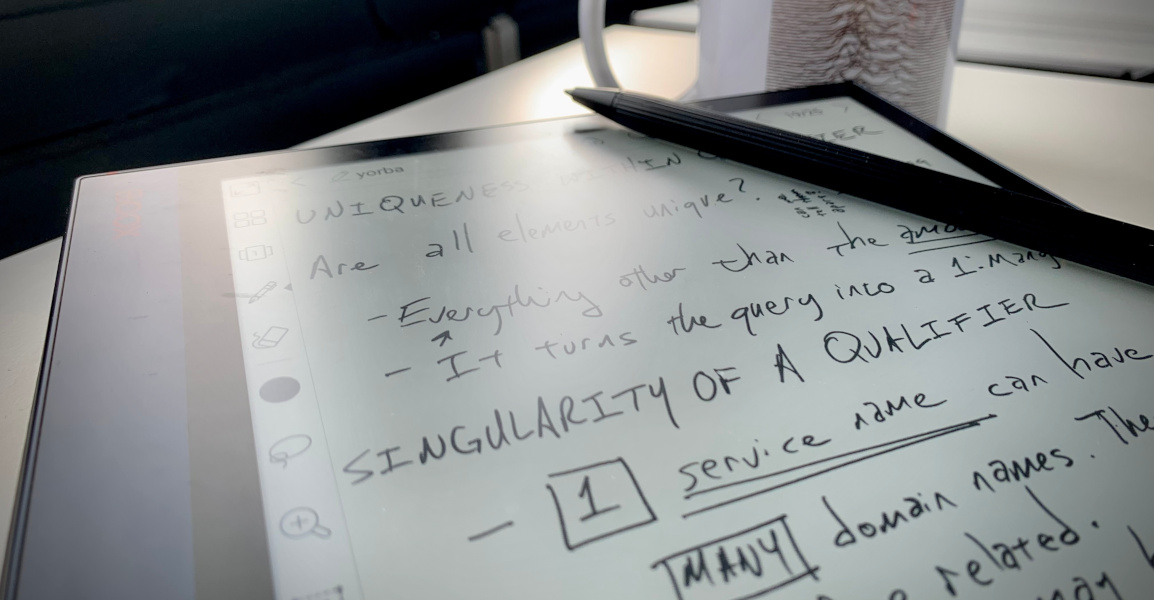 yorba
UNIQUENESS WITHIN
Are all elements unique?
- Everything other than the
- It turns the query into a 1:Many
SINGULARITY OF A QUALIFIER
- 1 service name can have
MANY domain names. The
related.
may